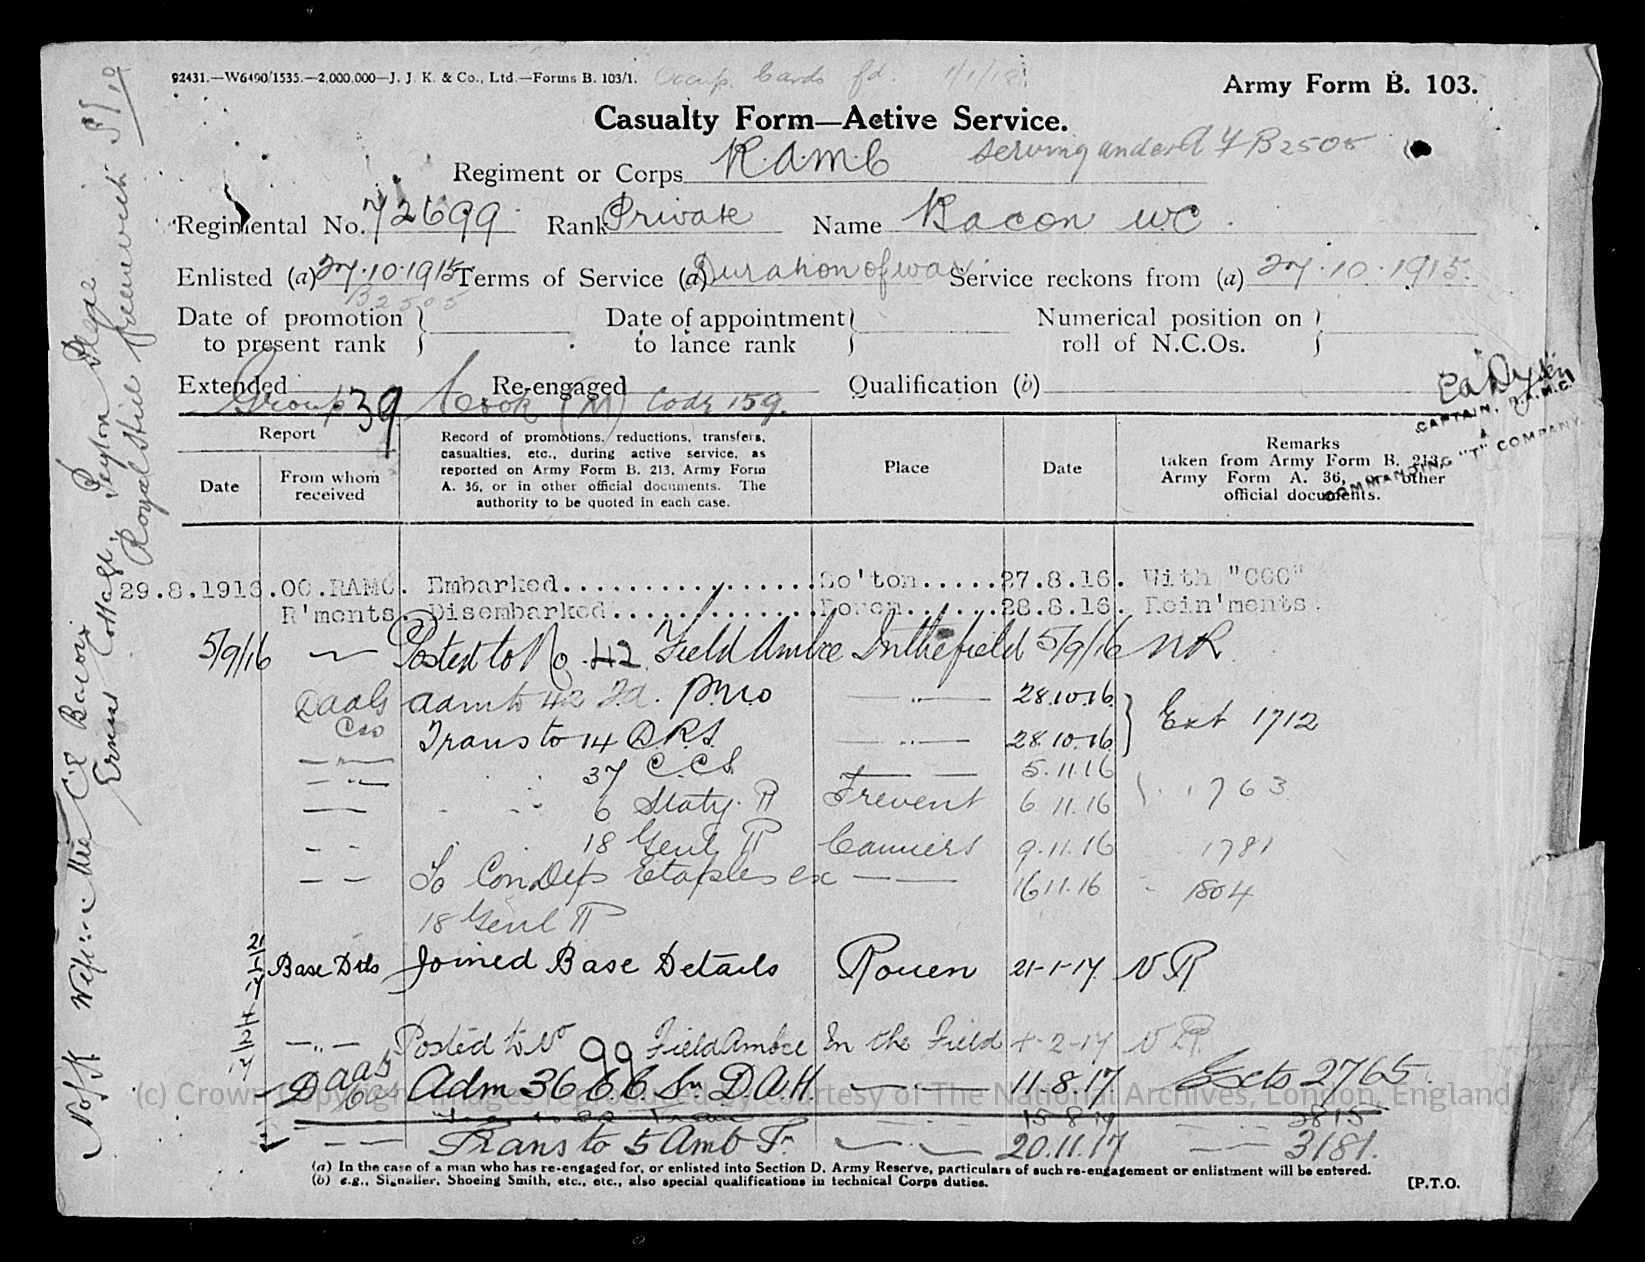 92431.—W6490/1535.—2,000,000—J. J. K. & Co., Ltd.—Forms B. 103/1.
Army Form B. 103.
Casualty Form—Active Service.
Regiment or Corps R.A.M.C
serving under A F B 2505
Regimental No. 72699 Rank Private Name Bacon W.C
Enlisted (a) 27.10.1915 Terms of Service (a) Duration of war Service reckons from (a) 27.10.1915.
B2505
Date of promotion to present rank
Date of appointment to lance rank
Numerical position on roll of N.C.Os.
Extended Re-engaged Qualification (b)
Group 39 Cook (M) Code 159.
CAPTAIN, R.A.M.C.
COMMANDING "T" COMPANY
Report
Date
From whom received
Record of promotions, reductions, transfers, casualties, etc., during active service, as reported on Army Form B. 213, Army Form A. 36, or in other official documents. The authority to be quoted in each case.
Place
Date
Remarks
taken from Army Form B. 213, Army Form A. 36, or other official documents.
29.8.1916. OC.RAMC. Embarked So'ton 27.8.16. With "CCC"
R'ments. Disembarked Rouen 28.8.16. Rein'ments.
5/9/16 Posted to No. 42 Field Ambce In the field 5/9/16 NR
adm to 42 Fd. 28.10.16
Trans to 14 D.R.S. 28.10.16 Ext 1712
37 C.C.S. 5.11.16
6 Staty. H Frevent 6.11.16 1763
18 Genl H Camiers 9.11.16 1781
To Con Dep Etaples ex 16.11.16 1804
18 Genl H
21/1/17 Base Dtls Joined Base Details Rouen 21-1-17 NR
Posted to No 99 Field Ambce In the Field 4-2-17 NR
Adm 36 DAH 11.8.17 Exts 2765.
15 8 17
Trans to 5 Amb Tn 20.11.17 3181.
(a) In the case of a man who has re-engaged for, or enlisted into Section D. Army Reserve, particulars of such re-engagement or enlistment will be entered.
(b) e.g., Signaller, Shoeing Smith, etc., etc., also special qualifications in technical Corps duties.
[P.T.O.
N of K Wife Mrs C E Bacon
Cottage, Peyton Place
Royal Hill Greenwich S E 10
(c) Crown Copyright Images reproduced by courtesy of The National Archives, London, England